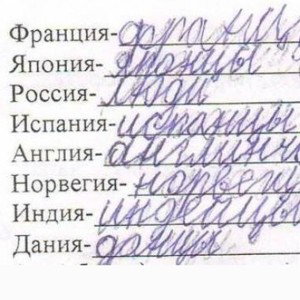 Франция- францу
Япония- японцы
Россия- люди
Испания- испанцы
Англия- англич
Норвегия- норвег
Индия- индейцы
Дания- данцы